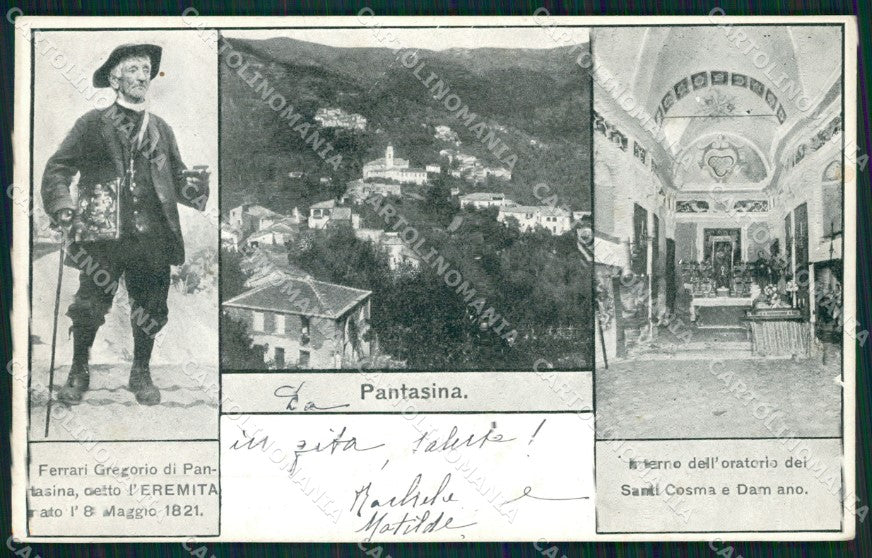 Ferrari Gregorio di Pan-
tasina, detto l'EREMITA
nato l' 8 Maggio 1821.
Da Pantasina.
in gita, saluti!
Rachele e
Matilde
Interno dell'oratorio dei
Santi Cosma e Damiano.
CARTOLINOMANIA